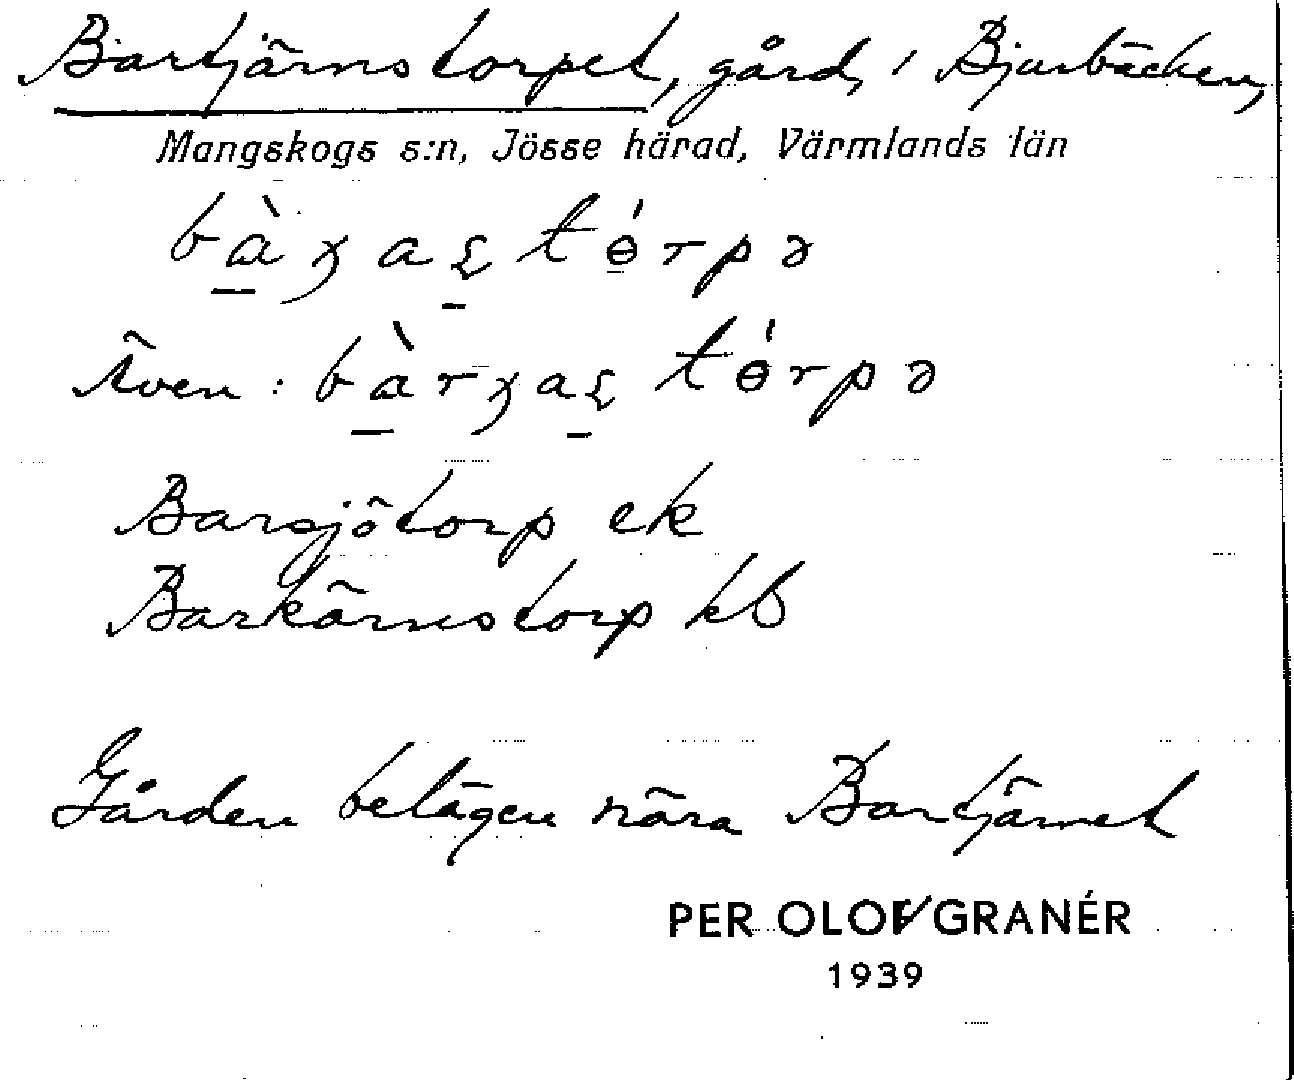 Bartjärnstorpet, gård, i Bjurbäcken,
Mangskogs s:n, Jösse härad, Värmlands län
Även:
Barsjötorp ek
Barkärnstorp kb
Gården belägen nära Bartjärnet
PER OLOF GRANÉR
1939